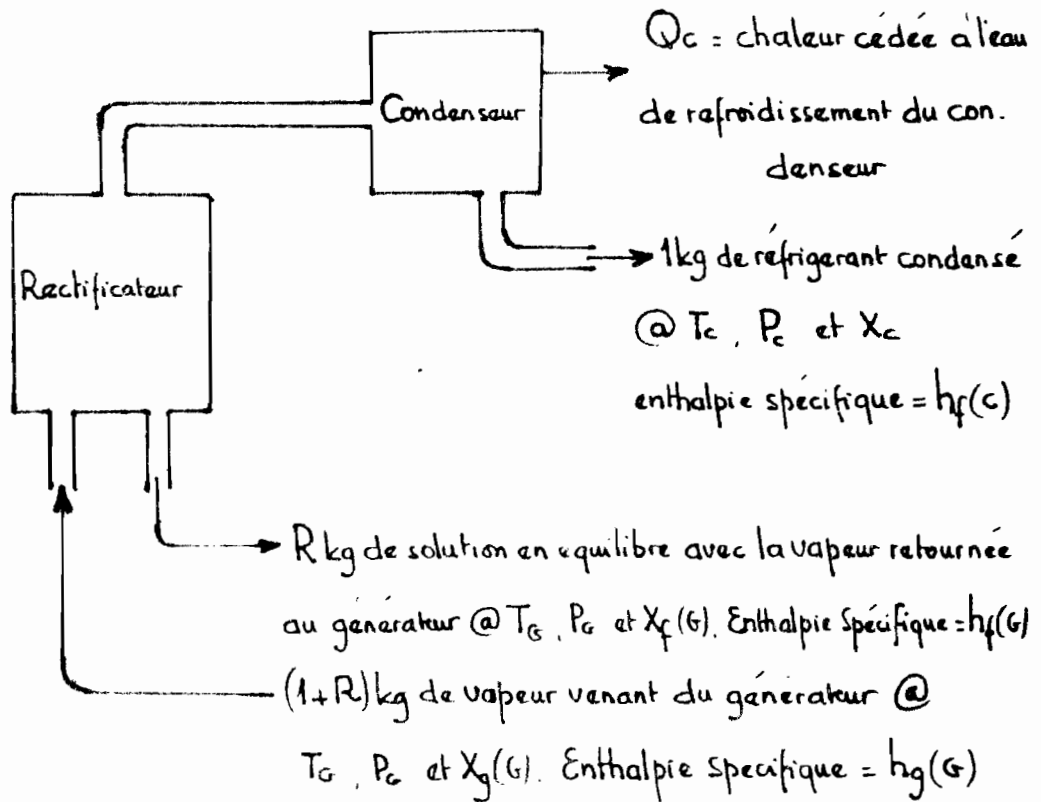 Qc = chaleur cédée à l'eau
de refroidissement du con.
denseur
Condenseur
Rectificateur
1kg de réfrigérant condensé
@ Tc, Pc et Xc
enthalpie spécifique = hf(c)
R kg de solution en equilibre avec la vapeur retournée
au génerateur @ TG, PG et Xf(G). Enthalpie Spécifique = hf(G)
(1+R) kg de vapeur venant du génerateur @
TG, PG et Xg(G). Enthalpie Specifique = hg(G)